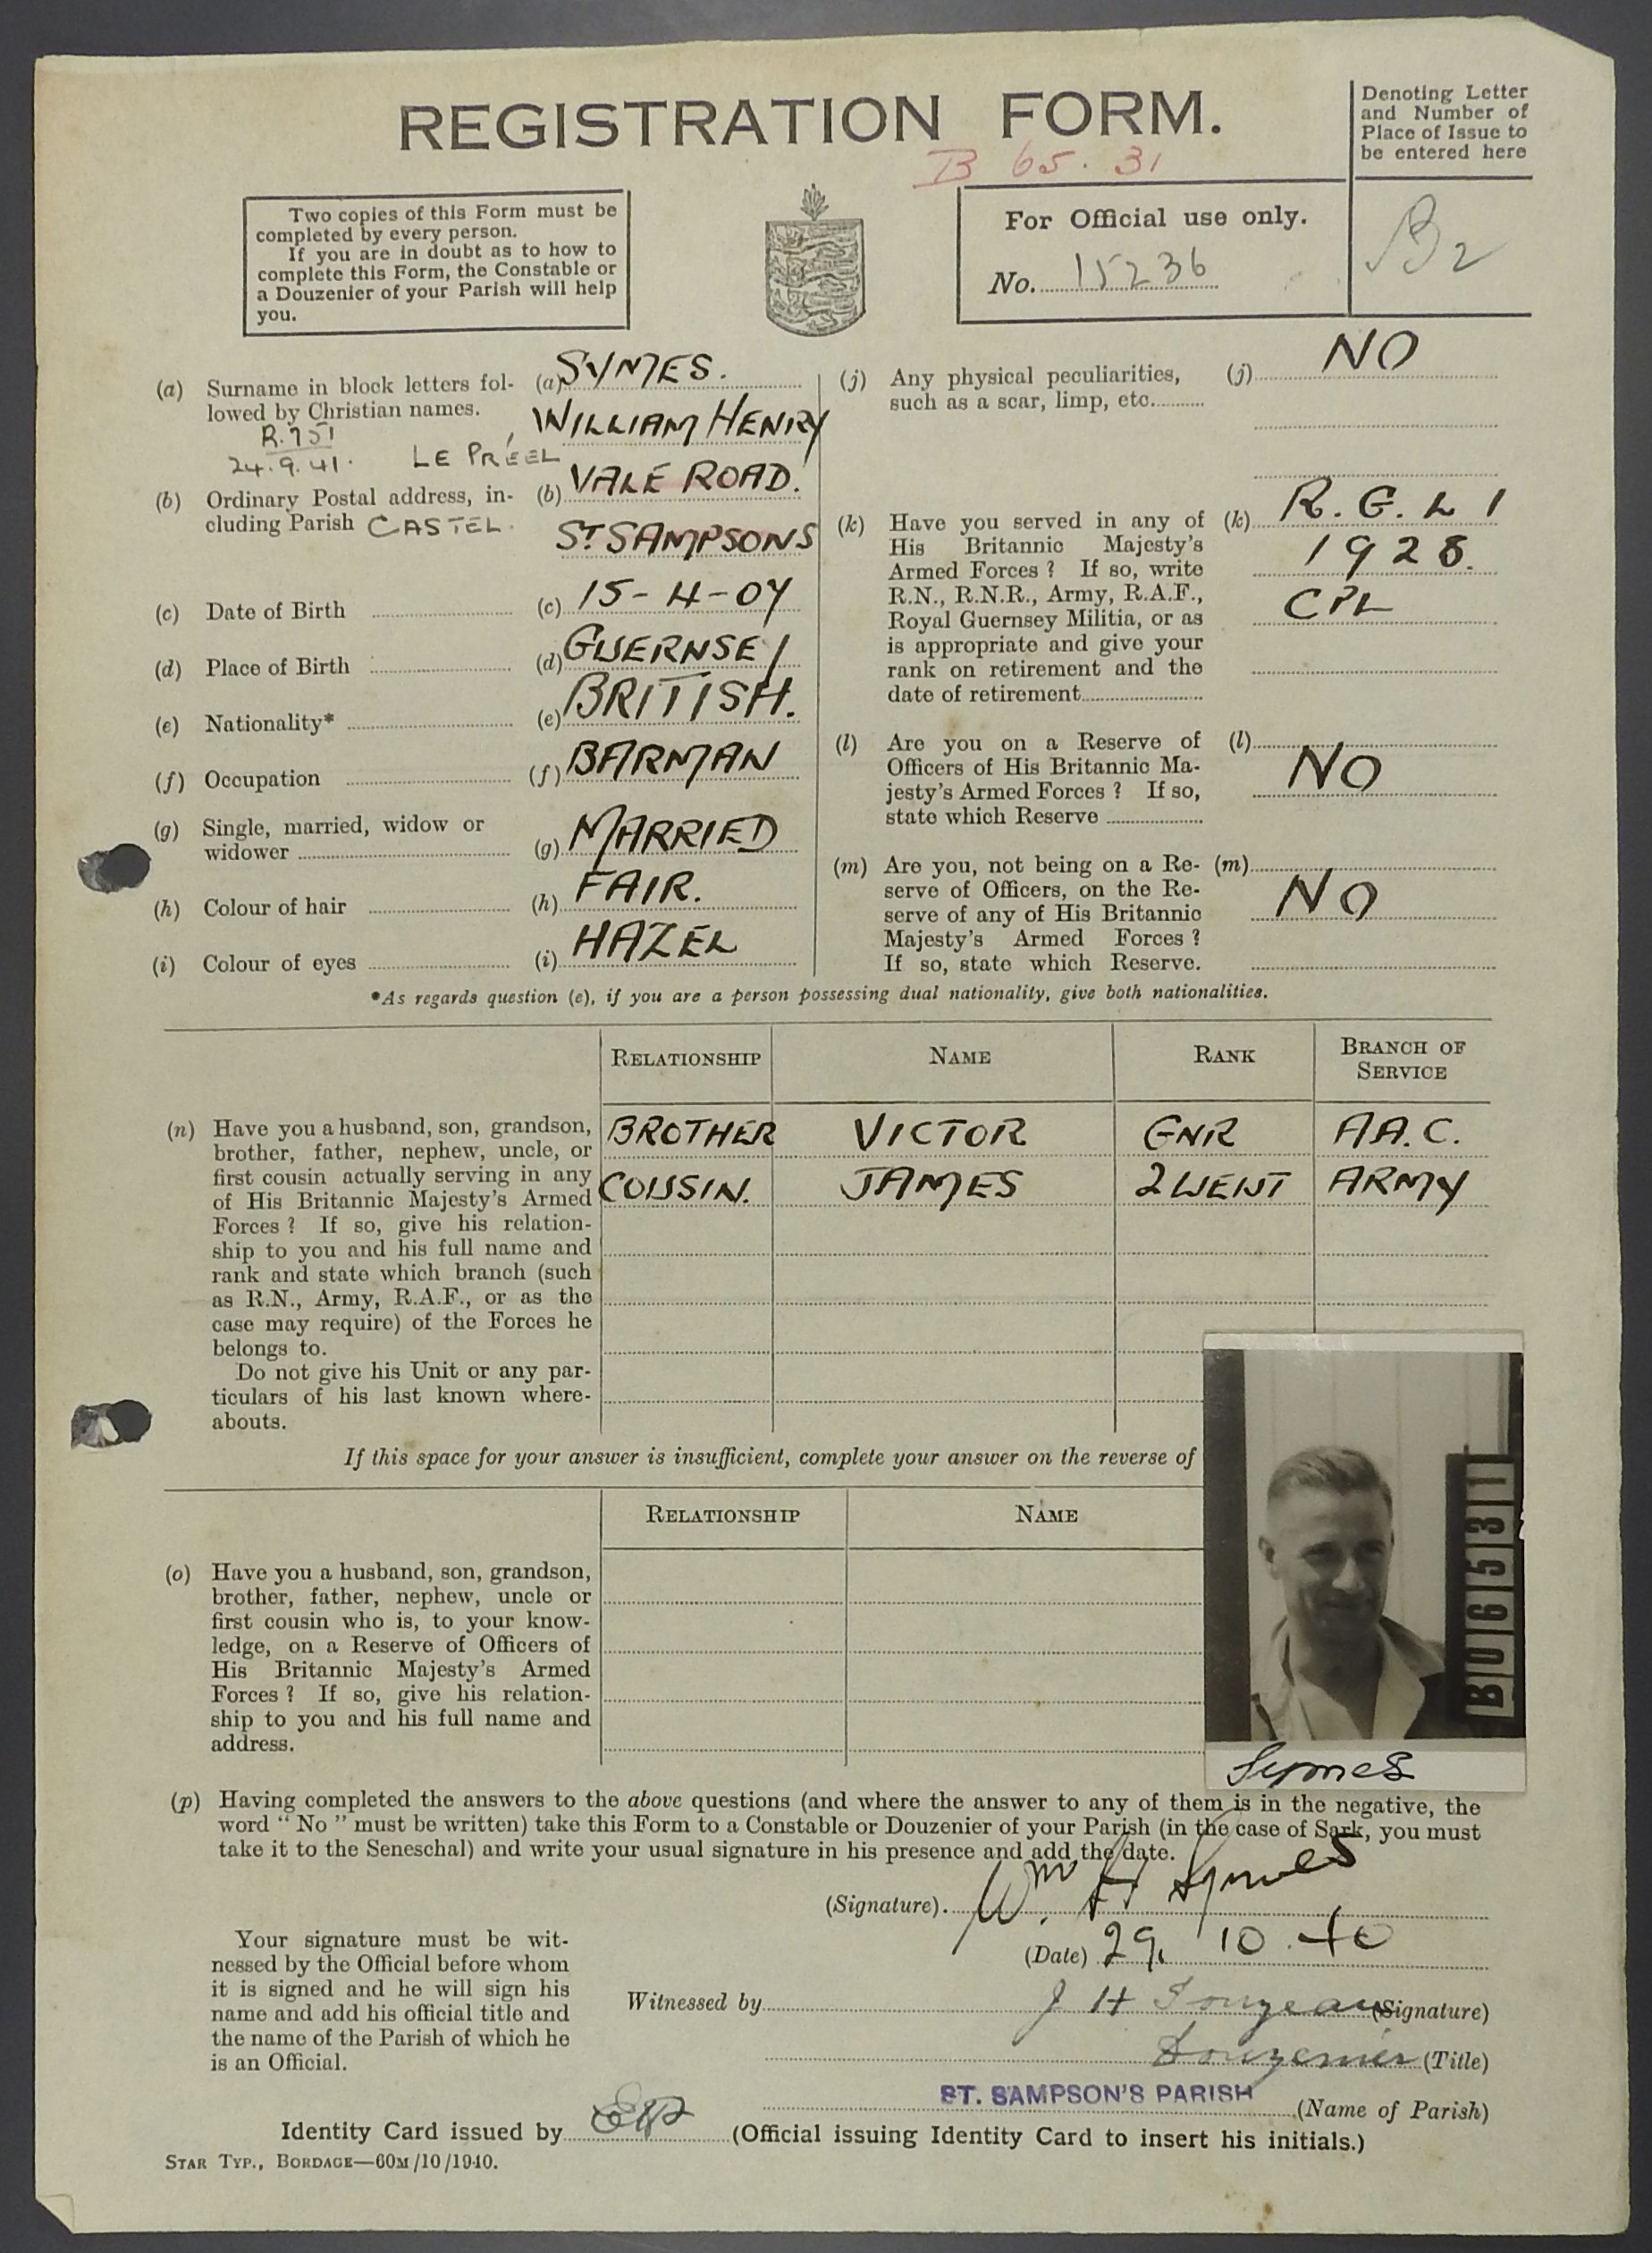 REGISTRATION FORM.
B 65.31
Denoting Letter
and Number of
Place of Issue to
be entered here
B2
Two copies of this Form must be
completed by every person.
If you are in doubt as to how to
complete this Form, the Constable or
a Douzenier of your Parish will help
you.
For Official use only.
No. 15236
(a) Surname in block letters fol- (a) SYMES.
lowed by Christian names. WILLIAM HENRY
R.751
24.9.41. LE PRÉEL
(b) Ordinary Postal address, in- (b) VALE ROAD.
cluding Parish CASTEL. ST SAMPSONS
(c) Date of Birth (c) 15-4-07
(d) Place of Birth (d) GUERNSEY
(e) Nationality* (e) BRITISH.
(f) Occupation (f) BARMAN
(g) Single, married, widow or
widower (g) MARRIED
(h) Colour of hair (h) FAIR.
(i) Colour of eyes (i) HAZEL
(j) Any physical peculiarities, (j) NO
such as a scar, limp, etc.
(k) Have you served in any of (k) R.G.L I
His Britannic Majesty's 1928.
Armed Forces? If so, write
R.N., R.N.R., Army, R.A.F., CPL
Royal Guernsey Militia, or as
is appropriate and give your
rank on retirement and the
date of retirement
(l) Are you on a Reserve of (l)
Officers of His Britannic Ma- NO
jesty's Armed Forces? If so,
state which Reserve
(m) Are you, not being on a Re- (m)
serve of Officers, on the Re- NO
serve of any of His Britannic
Majesty's Armed Forces?
If so, state which Reserve.
*As regards question (e), if you are a person possessing dual nationality, give both nationalities.
RELATIONSHIP NAME RANK BRANCH OF SERVICE
BROTHER VICTOR GNR AA.C.
COUSIN. JAMES 2 LIEUT ARMY
(n) Have you a husband, son, grandson,
brother, father, nephew, uncle, or
first cousin actually serving in any
of His Britannic Majesty's Armed
Forces? If so, give his relation-
ship to you and his full name and
rank and state which branch (such
as R.N., Army, R.A.F., or as the
case may require) of the Forces he
belongs to.
Do not give his Unit or any par-
ticulars of his last known where-
abouts.
If this space for your answer is insufficient, complete your answer on the reverse of
RELATIONSHIP NAME
(o) Have you a husband, son, grandson,
brother, father, nephew, uncle or
first cousin who is, to your know-
ledge, on a Reserve of Officers of
His Britannic Majesty's Armed
Forces? If so, give his relation-
ship to you and his full name and
address.
B06531
Symes
(p) Having completed the answers to the above questions (and where the answer to any of them is in the negative, the
word "No" must be written) take this Form to a Constable or Douzenier of your Parish (in the case of Sark, you must
take it to the Seneschal) and write your usual signature in his presence and add the date.
(Signature). Wm. H Symes
(Date) 29. 10. 40
Your signature must be wit-
nessed by the Official before whom
it is signed and he will sign his
name and add his official title and
the name of the Parish of which he
is an Official.
Witnessed by J H (Signature)
Douzenier (Title)
ST. SAMPSON'S PARISH (Name of Parish)
Identity Card issued by (Official issuing Identity Card to insert his initials.)
STAR TYP., BORDAGE—60M/10/1940.